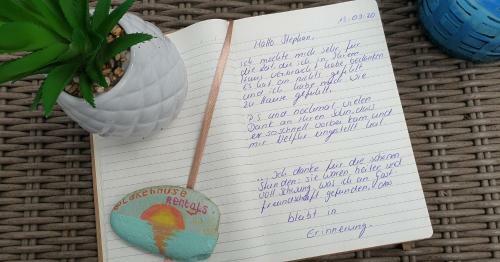 13.09.20
Hallo Stephan,
ich möchte mich sehr für
die Zeit, die ich in Ihrem
Haus verbracht habe, bedanken
Es hat an nichts gefehlt
und ich habe mich wie
zu Hause gefühlt.
PS und nochmal vielen
Dank an Ihren Sohn, dass
er so schnell vorbei kam, und
mir Netflix eingestellt hat
... Ich danke für die schönen
Stunden: sie waren heiter und
voll Schwung, was ich an Gast
freundschaft gefunden, das
bleibt in
Erinnerung.
Lakehouse
Rentals